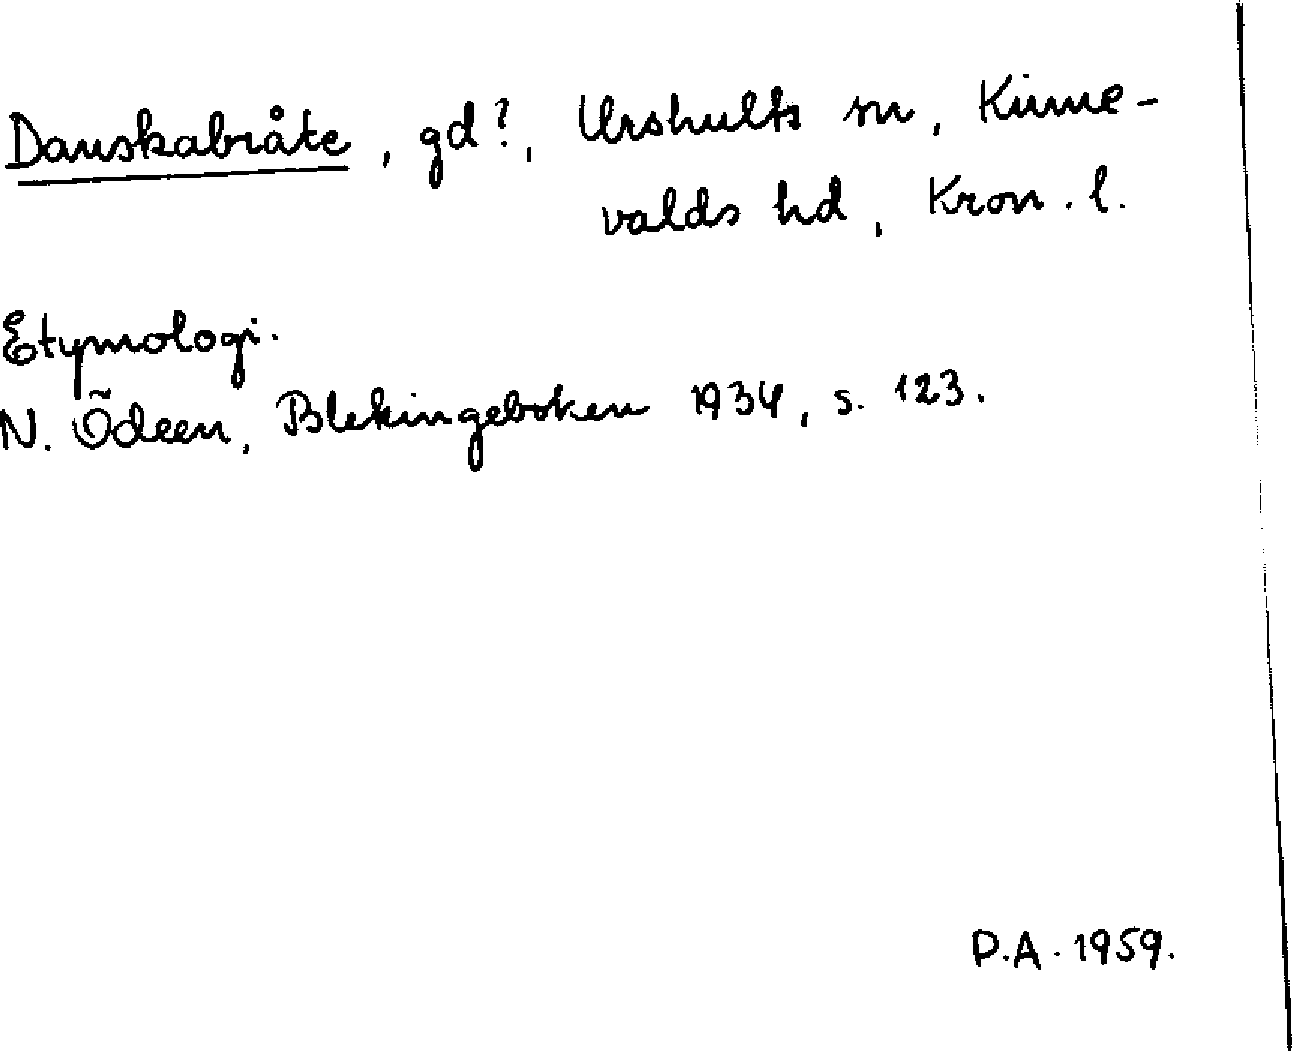 Danskabråte, gd?, Urshults sn, Kinne-
valds hd, Kron. l.
Etymologi.
N. Ödeen, Blekingeboken 1934, s. 123.
P.A. 1959.